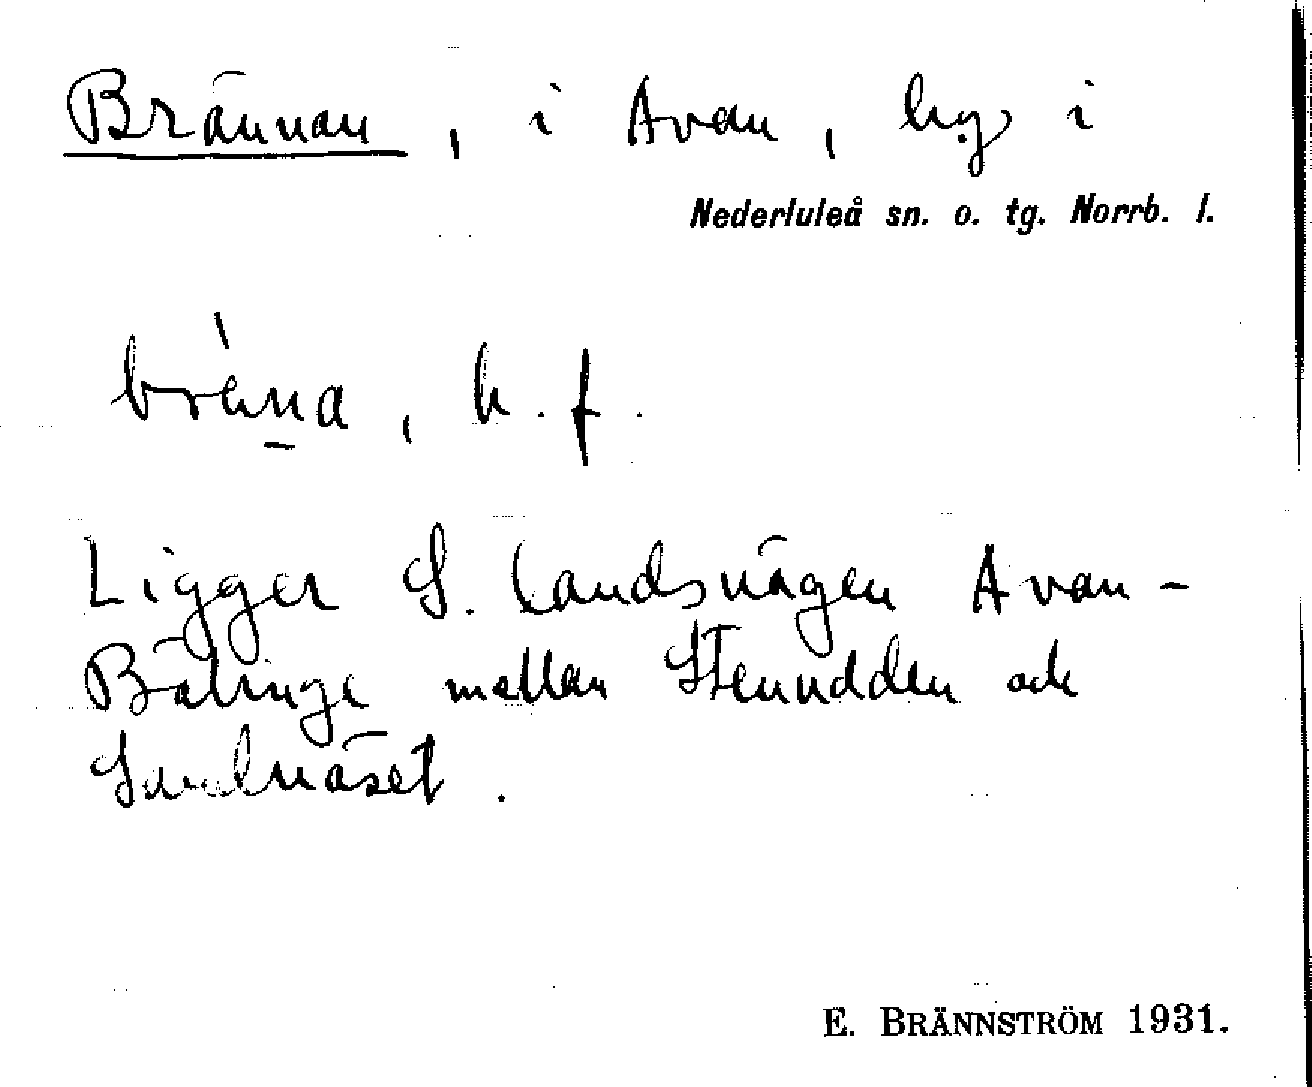 Brännan, i Avan, by i
Nederluleå sn. o. tg. Norrb. l.
bräna, b. f.
Ligger S. landsvägen Avan-
Bälinge mellan Stenudden och
Sandnäset.
E. BRÄNNSTRÖM 1931.